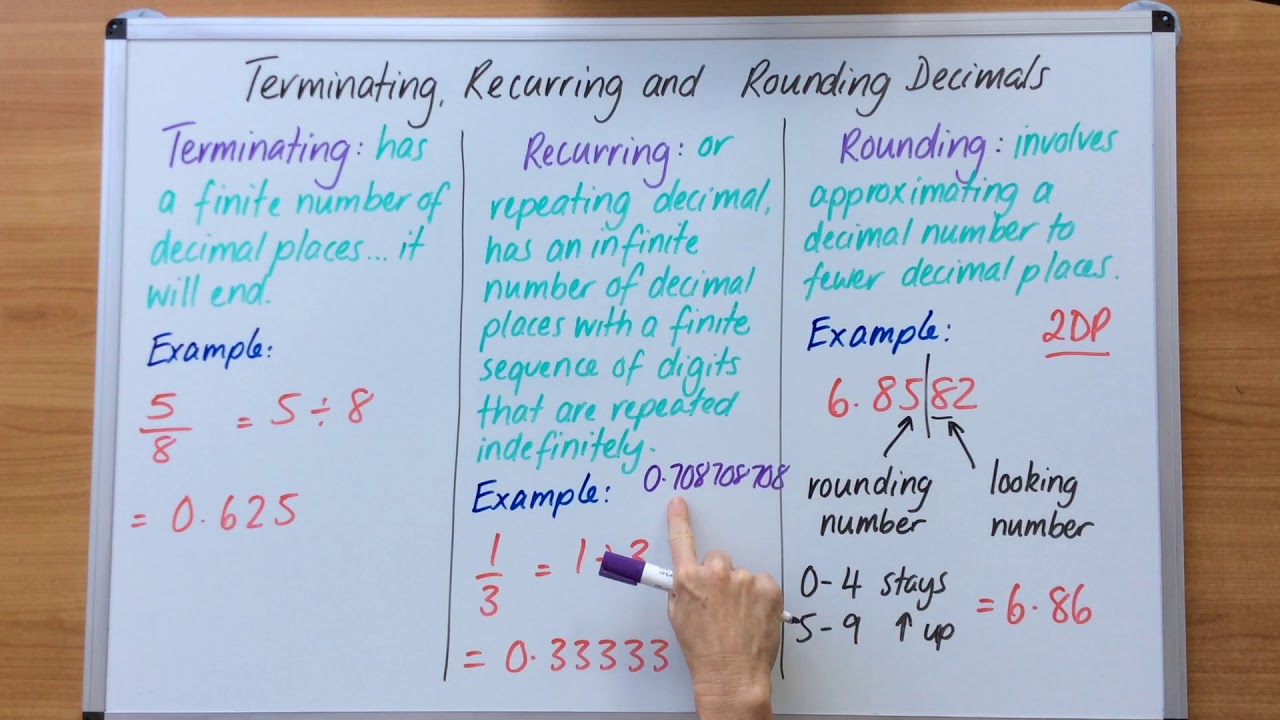 Terminating, Recurring and Rounding Decimals
Terminating: has
a finite number of
decimal places... it
will end.
Example:
5
8
= 5 ÷ 8
= 0.625
Recurring: or
repeating decimal,
has an infinite
number of decimal
places with a finite
sequence of digits
that are repeated
indefinitely.
Example: 0.708708708
1
3
= 1 ÷ 3
= 0.33333
Rounding: involves
approximating a
decimal number to
fewer decimal places.
Example: 2DP
6.85|82
rounding looking
number number
0-4 stays
5-9 ↑ up
= 6.86